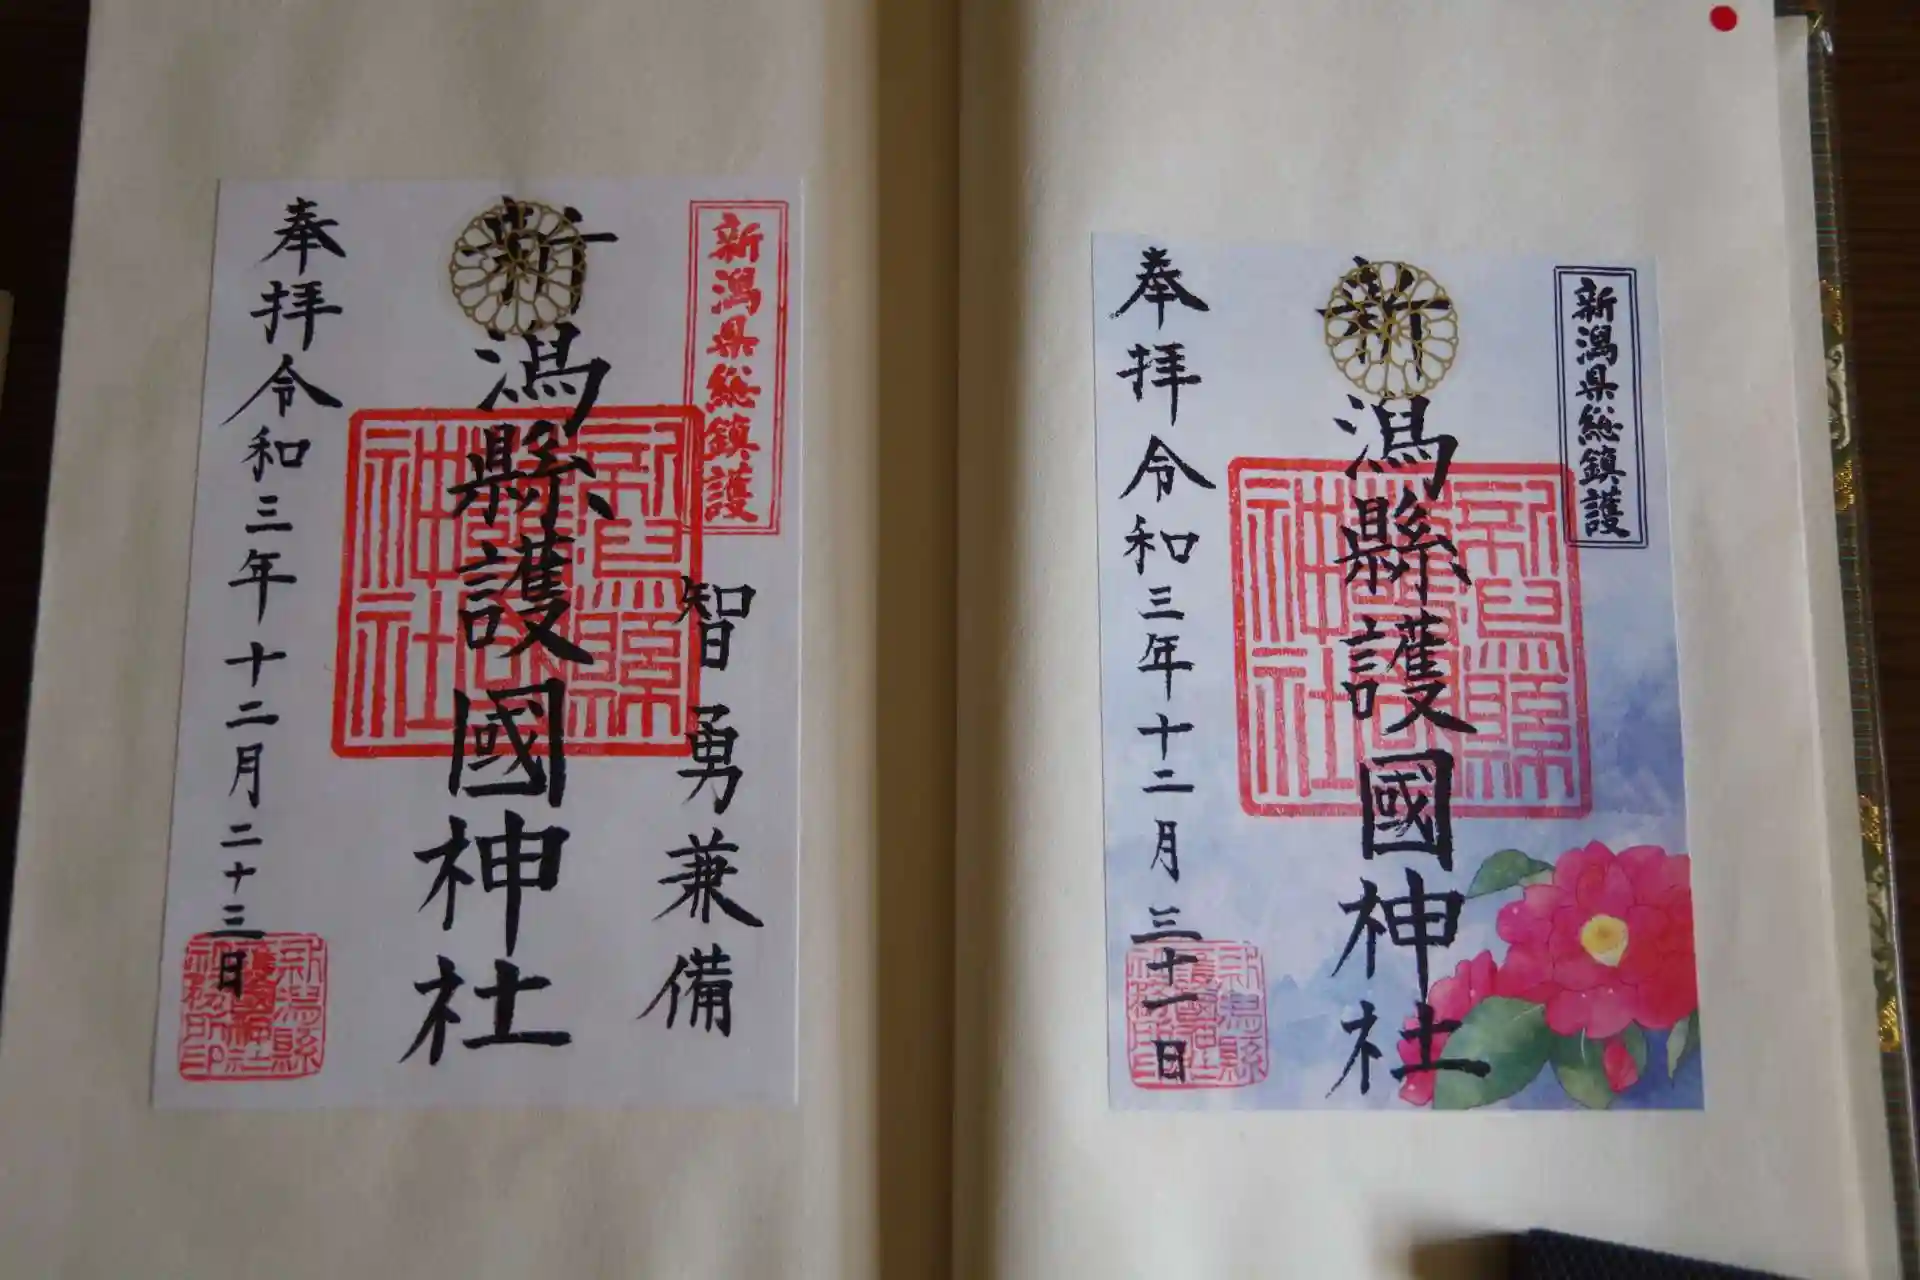 新潟県総鎮護
新潟縣護國神社
奉拝令和三年十二月三十一日
新潟縣護國神社
新潟県総鎮護
智勇兼備
新潟縣護國神社
奉拝令和三年十二月二十三日
新潟縣護國神社
新潟縣護國神社社務所印